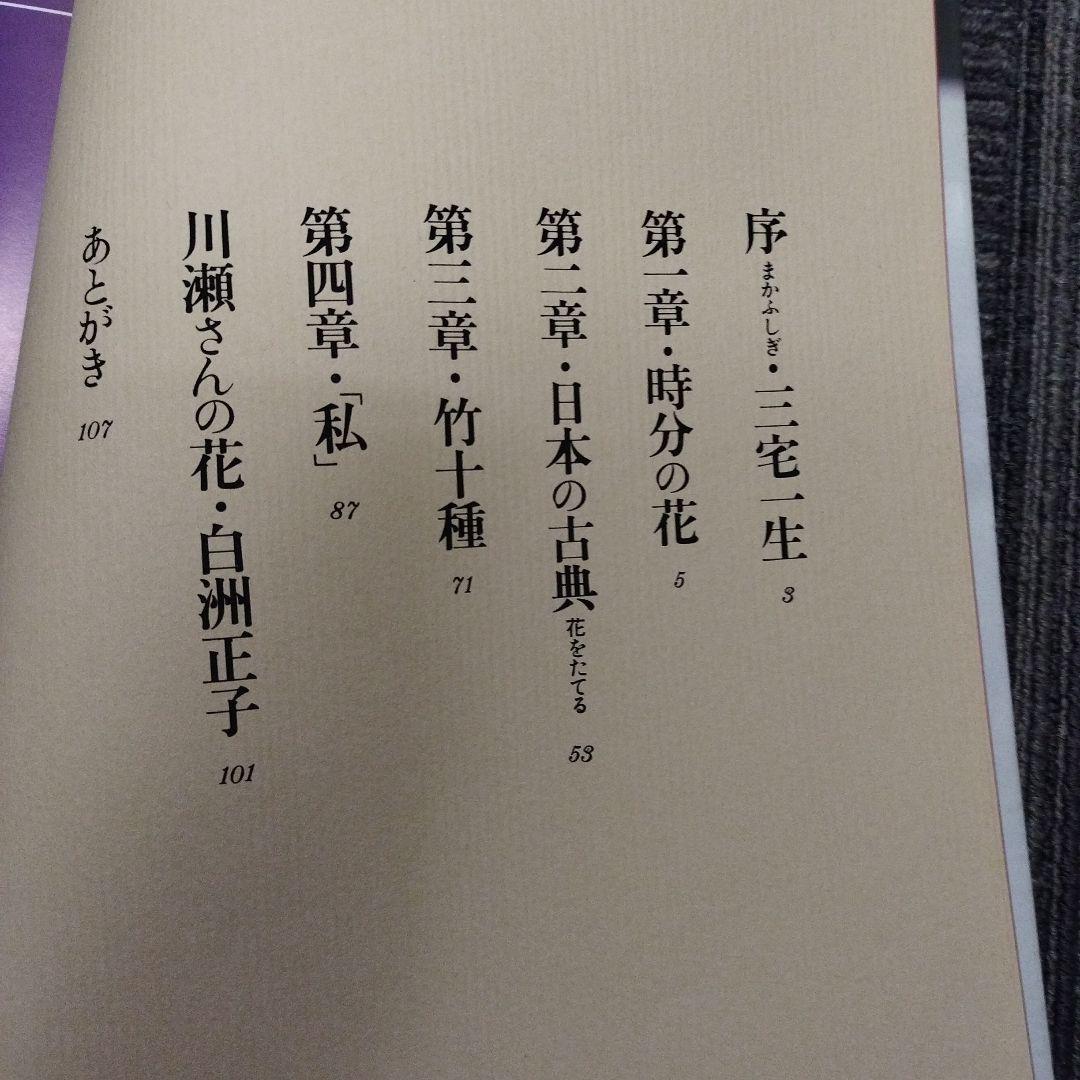 序 まかふしぎ・三宅一生 3
第一章・時分の花 5
第二章・日本の古典 花をたてる 53
第三章・竹十種 71
第四章・「私」 87
川瀬さんの花・白洲正子 101
あとがき 107